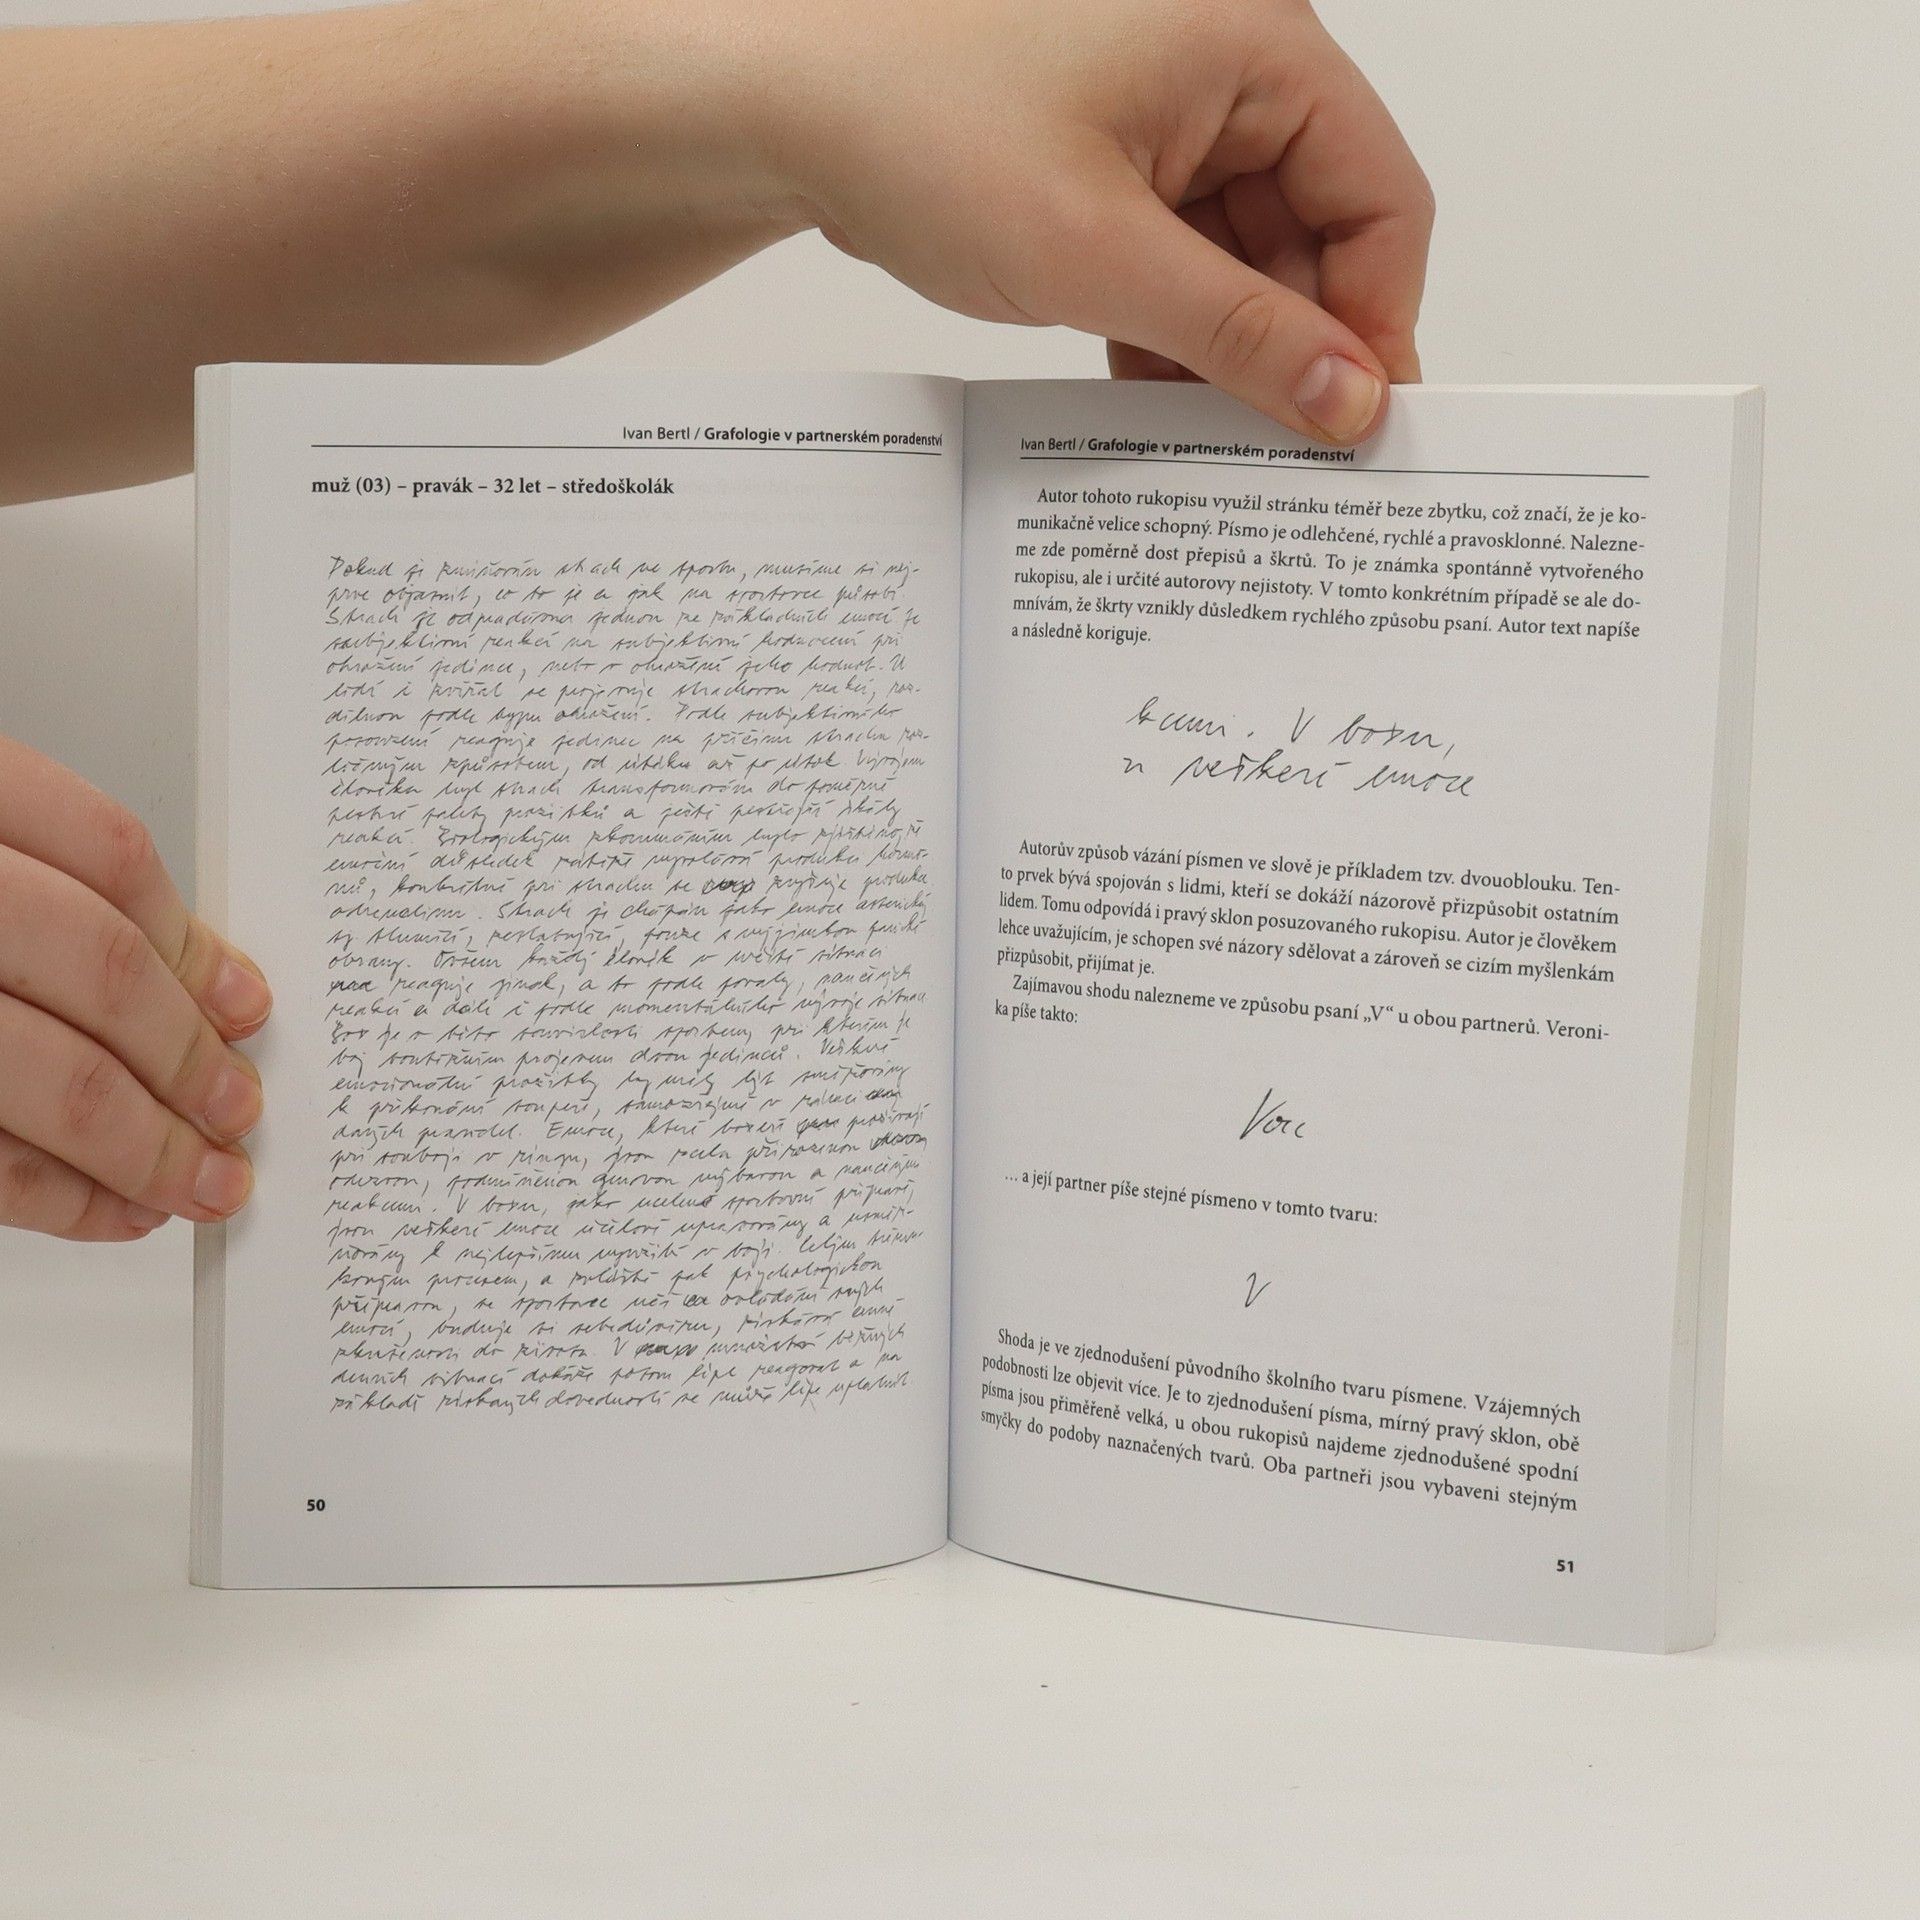 Ivan Bertl / Grafologie v partnerském poradenství
muž (03) – pravák – 32 let – středoškolák
Pokud je zmiňován strach ve sportu, musíme si nej-
prve objasnit, co to je a jak na sportovce působí.
Strach je odpradávna jednou ze základních emocí. Je
subjektivní reakcí na subjektivní hodnocení při
ohrožení jedince, nebo o ohrožení jeho hodnot. U
lidí i zvířat se projevuje strachovou reakcí, roz-
dílnou podle typu ohrožení. Podle subjektivního
posouzení reaguje jedinec na příčinu strachu roz-
ličným způsobem, od útěku až po útok. Vývojem
člověka byl strach transformován do poměrně
pestré palety prožitků a ještě pestřejší škály
reakcí. Biologickým zkoumáním bylo zjištěno, že
emoční důsledek zátěže vyvolává produkci hormo-
nů, konkrétně při strachu se zvyšuje produkce
adrenalinu. Strach je chápán jako emoce astenická,
tj. tlumící, zeslabující, pouze s výjimkou panické
obrany. Ovšem každý člověk v určité situaci
reaguje jinak, a to podle povahy, naučených
reakcí a dále i podle momentálního vývoje situace.
Box je v této souvislosti sportem, při kterém je
boj soutěžním projevem dvou jedinců. Veškeré
emocionální prožitky by měly být směřovány
k překonání soupeře, samozřejmě v rámci
daných pravidel. Emoce, které boxeři prožívají
při souboji v ringu, jsou zcela přirozenou
odezvou, podmíněnou genovou výbavou a naučenými
reakcemi. V boxu, jako ucelené sportovní přípravě,
jsou veškeré emoce účelově upravovány a usměr-
ňovány k nejlepšímu využití v boji. Celým trénin-
kovým procesem, a zvláště pak psychologickou
přípravou, se sportovec učí ovládání svých
emocí, buduje si sebedůvěru, získává cenné
zkušenosti do života. V množství běžných
denních situací dokáže potom lépe reagovat a na
základě získaných dovedností se může lépe uplatnit.
50
Ivan Bertl / Grafologie v partnerském poradenství
Autor tohoto rukopisu využil stránku téměř beze zbytku, což značí, že je ko-
munikačně velice schopný. Písmo je odlehčené, rychlé a pravosklonné. Nalezne-
me zde poměrně dost přepisů a škrtů. To je známka spontánně vytvořeného
rukopisu, ale i určité autorovy nejistoty. V tomto konkrétním případě se ale do-
mnívám, že škrty vznikly důsledkem rychlého způsobu psaní. Autor text napíše
a následně koriguje.
kcemi. V boxu,
u veškeré emoce
Autorův způsob vázání písmen ve slově je příkladem tzv. dvouoblouku. Ten-
to prvek bývá spojován s lidmi, kteří se dokáží názorově přizpůsobit ostatním
lidem. Tomu odpovídá i pravý sklon posuzovaného rukopisu. Autor je člověkem
lehce uvažujícím, je schopen své názory sdělovat a zároveň se cizím myšlenkám
přizpůsobit, přijímat je.
Zajímavou shodu nalezneme ve způsobu psaní „V“ u obou partnerů. Veroni-
ka píše takto:
… a její partner píše stejné písmeno v tomto tvaru:
V
Shoda je ve zjednodušení původního školního tvaru písmene. Vzájemných
podobností lze objevit více. Je to zjednodušení písma, mírný pravý sklon, obě
písma jsou přiměřeně velká, u obou rukopisů najdeme zjednodušené spodní
smyčky do podoby naznačených tvarů. Oba partneři jsou vybaveni stejným
51